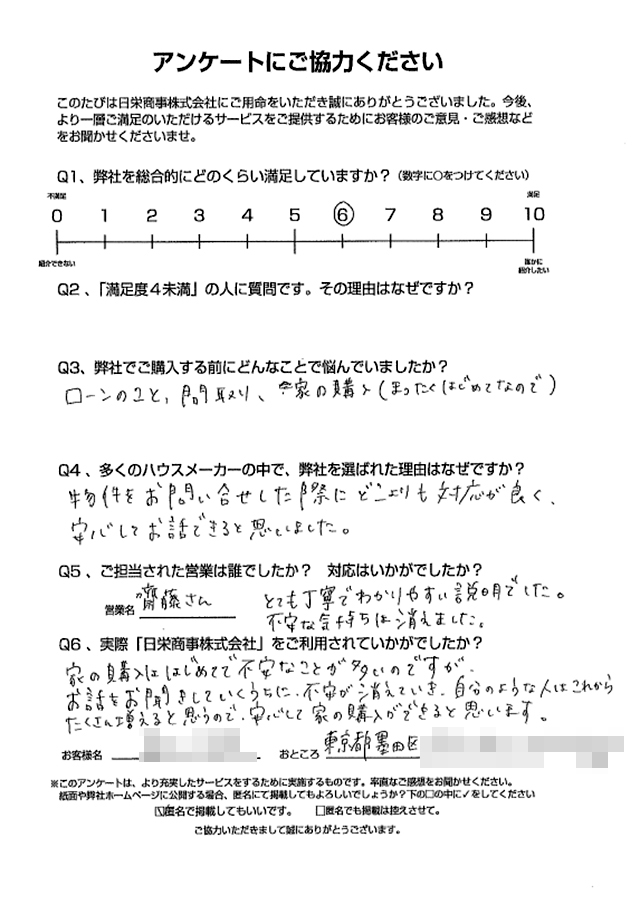 アンケートにご協力ください
このたびは日栄商事株式会社にご用命をいただき誠にありがとうございました。今後、
より一層ご満足のいただけるサービスをご提供するためにお客様のご意見・ご感想など
をお聞かせくださいませ。
Q1、弊社を総合的にどのくらい満足していますか？（数字に○をつけてください）
不満足 満足
0 1 2 3 4 5 6 7 8 9 10
紹介できない 誰かに
紹介したい
Q2、「満足度４未満」の人に質問です。その理由はなぜですか？
Q3、弊社でご購入する前にどんなことで悩んでいましたか？
ローンのこと、間取り、家の購入(まったくはじめてなので)
Q4、多くのハウスメーカーの中で、弊社を選ばれた理由はなぜですか？
物件をお問い合せした際にどこよりも対応が良く、
安心してお話できると思いました。
Q5、ご担当された営業は誰でしたか？　対応はいかがでしたか？
営業名 齋藤さん とても丁寧でわかりやすい説明でした。
不安な気持ちは消えました。
Q6、実際「日栄商事株式会社」をご利用されていかがでしたか？
家の購入ははじめてで不安なことが多いのですが、
お話をお聞きしていくうちに、不安が消えていき、自分のような人はこれから
たくさん増えると思うので、安心して家の購入ができると思います。
お客様名 おところ 東京都墨田区
※このアンケートは、より充実したサービスをするために実施するものです。率直なご感想をお聞かせください。
紙面や弊社ホームページに公開する場合、匿名にて掲載してもよろしいでしょうか？下の□の中に✓をしてください
☑匿名で掲載してもいいです。　□匿名でも掲載は控えさせて。
ご協力いただきまして誠にありがとうございます。